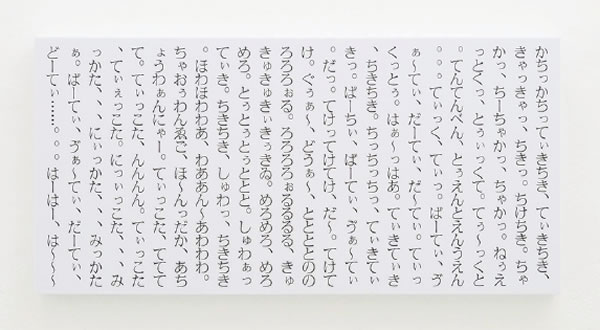 かちっかちってぃきちき、てぃきちき、
きゃっきゃっ、ちきっ。ちけちき。ちゃ
かっ、ちーちゃかっ、ちゃかっ。ねぅえ
っとくっ、とぅぃっくて。てぅ〜っくと
。てんてんぺん、とぅえんとえんうえん
。。。てぃっく、てぃっ。ばーてぃ、ゔ
ぁ〜てぃ、だーてぃ、だ〜てぃ。てぃっ
くっとぅ。はぁ〜っはあ。てぃきてぃき
、ちきちき。ちっちっちっ、てぃきてぃ
きっ。ばーちぃ、ばーてぃ、ゔぁ〜てぃ
。だっ。てけってけてけ、だ〜。てけて
け。ぐぅぁ〜、どうぁ〜、ととととのの
ろろろぉる。ろろろろぉるるるる、きゅ
きゅきゅきぃきぅきゐ。めろめろ、めろ
めろ。とぅとぅとぅととと。しゅわぁっ
てぃき。ちきちき、しゅわっ、ちきちき
。ほわほわわあ、わああん〜あわわわ。
ちゃおぅわんゑご、ほ〜んっだか、あち
ょうわぁんにゃー。てぃっこた、ててて
て。てぃっこた、んんんん。てぃっこた
、てぃぇっこた。にっぃっこた、、、み
っかた、、、にぃっかた、、、みっかた
ぁ。ばーてぃ、ゔぁ〜てぃ、だーてぃ、
どーてぃ……。。。はーはー、は〜〜〜